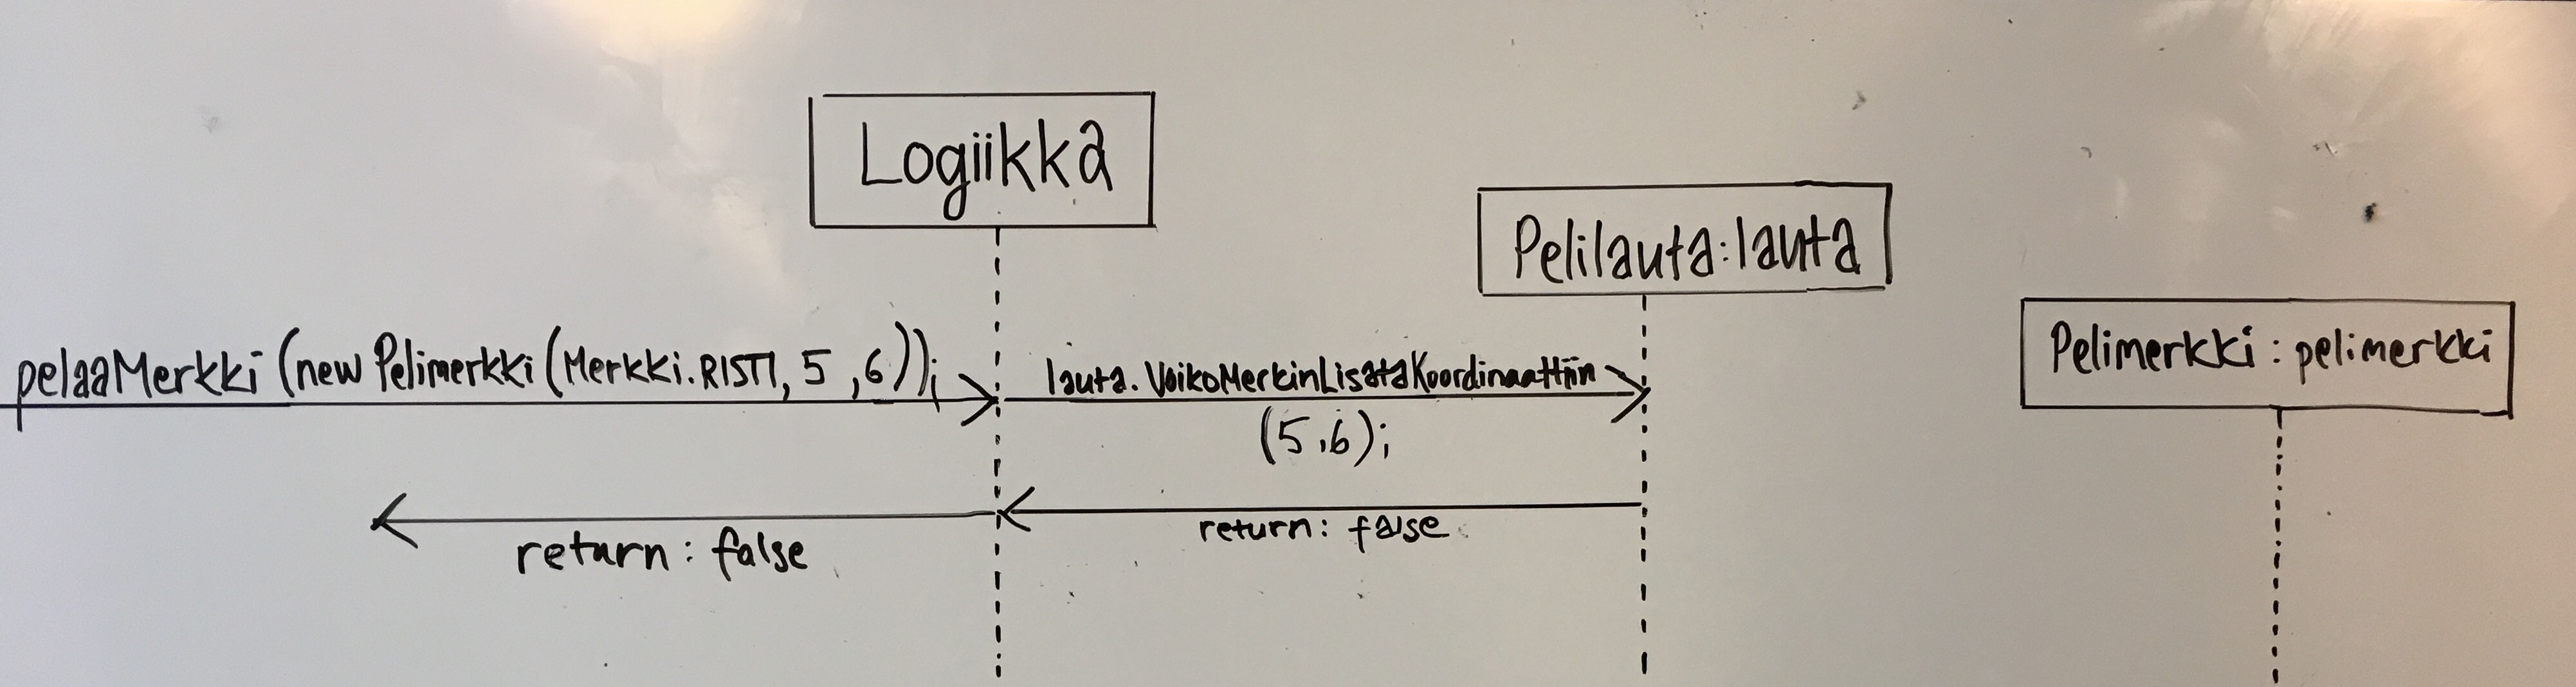 Logiikka
Pelilauta:lauta
Pelimerkki : pelimerkki
pelaaMerkki (new Pelimerkki (Merkki.RISTI, 5 ,6));
lauta.VoikoMerkinLisataKoordinaattiin
(5,6);
return: false
return: false